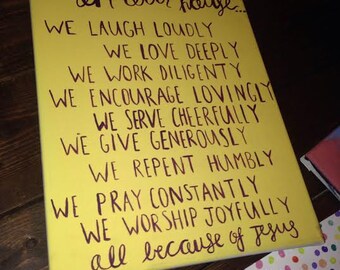 in our house...
WE LAUGH LOUDLY
WE LOVE DEEPLY
WE WORK DILIGENTY
WE ENCOURAGE LOVINGLY
WE SERVE CHEERFULLY
WE GIVE GENEROUSLY
WE REPENT HUMBLY
WE PRAY CONSTANTLY
WE WORSHIP JOYFULLY
all because of Jesus